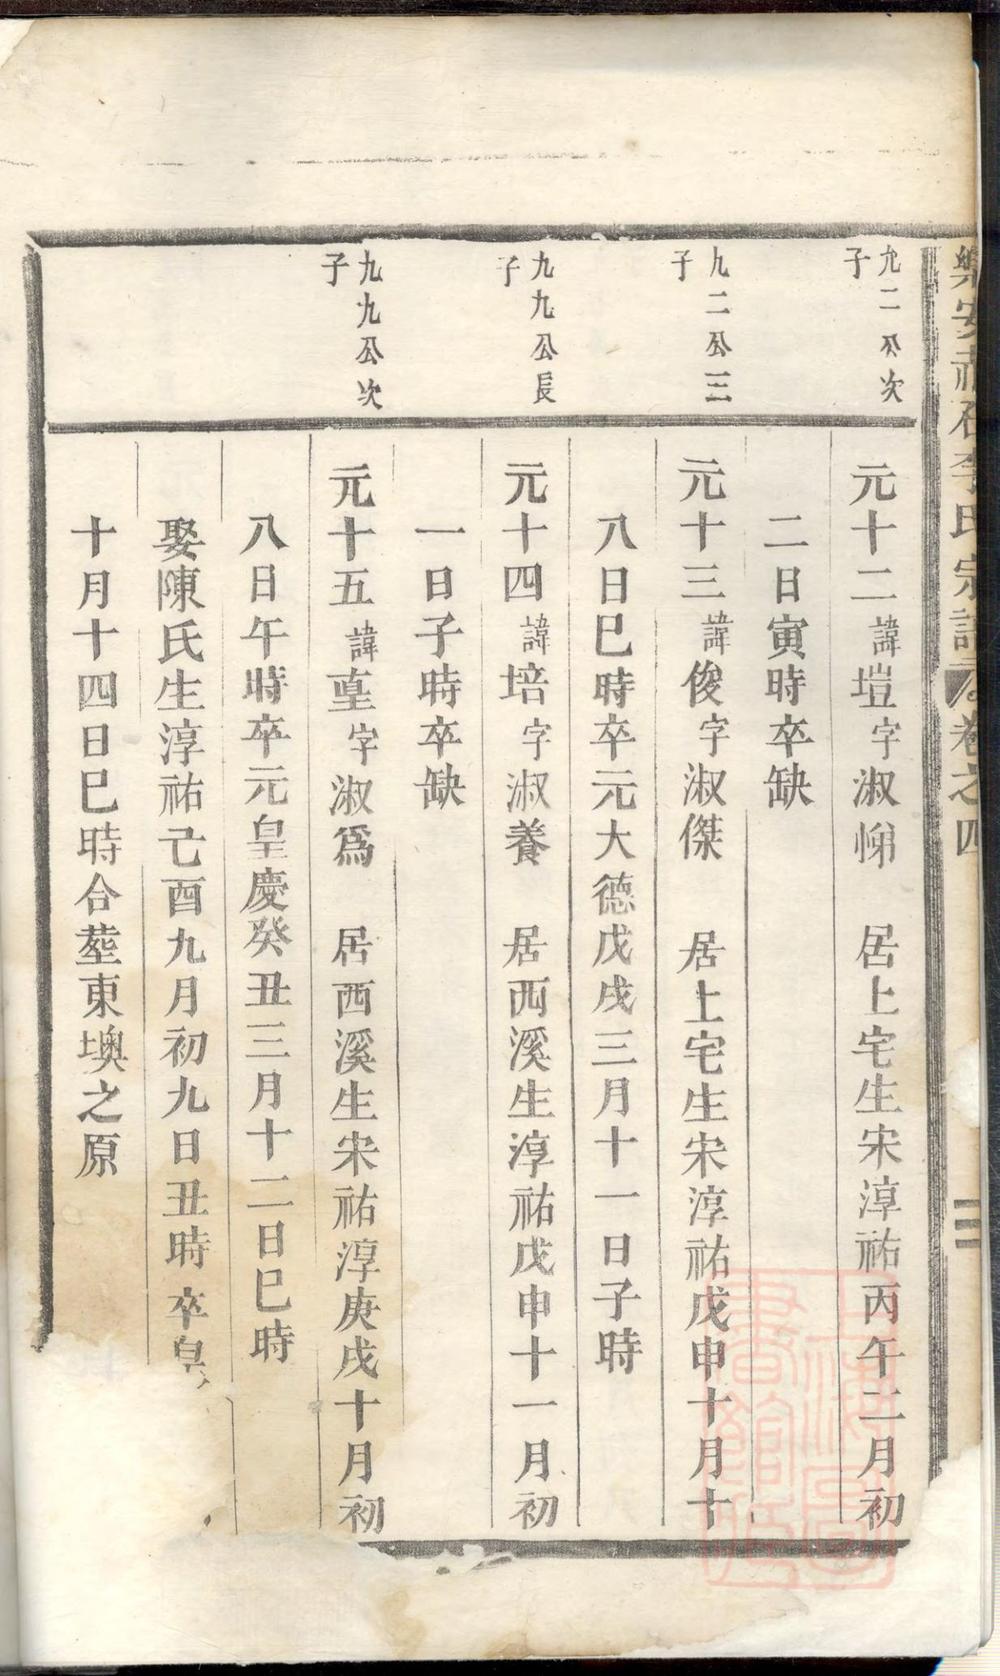 樂安 石李氏宗譜 卷之四
九二公次子
元十二諱塏字淑悌 居上宅生宋淳祐丙午二月初
二日寅時卒缺
九二公三子
元十三諱俊字淑傑 居上宅生宋淳祐戊申十月十
八日巳時卒元大德戊戌三月十一日子時
九九公長子
元十四諱培字淑養 居西溪生淳祐戊申十一月初
一日子時卒缺
九九公次子
元十五諱 字淑爲 居西溪生宋祐淳庚戌十月初
八日午時卒元皇慶癸丑三月十二日巳時
娶陳氏生淳祐己酉九月初九日丑時卒皇
十月十四日巳時合塟東墺之原